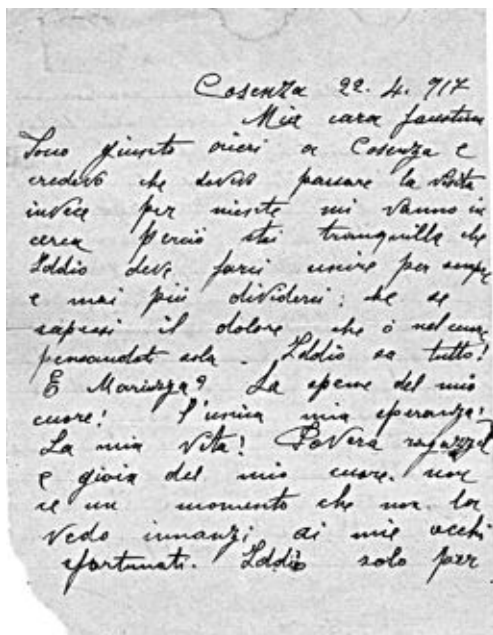 Cosenza 22. 4. 917
Mia cara faustina
Sono giunto ieri a Cosenza e
credevo che dovevo passare la visita
invece per niente mi vanno in
cerca perciò stai tranquilla che
Iddio deve farci unire per sempre
e mai più dividerci; che se
sapessi il dolore che ò nel cuore
pensandoti sola. Iddio sa tutto!
E Mariuzza? La speme del mio
cuore! l'unica mia speranza!
La mia vita! Povera ragazza
e gioia del mio cuore. non
c'è un momento che non la
vedo innanzi ai mie occhi
sfortunati. Iddio solo per